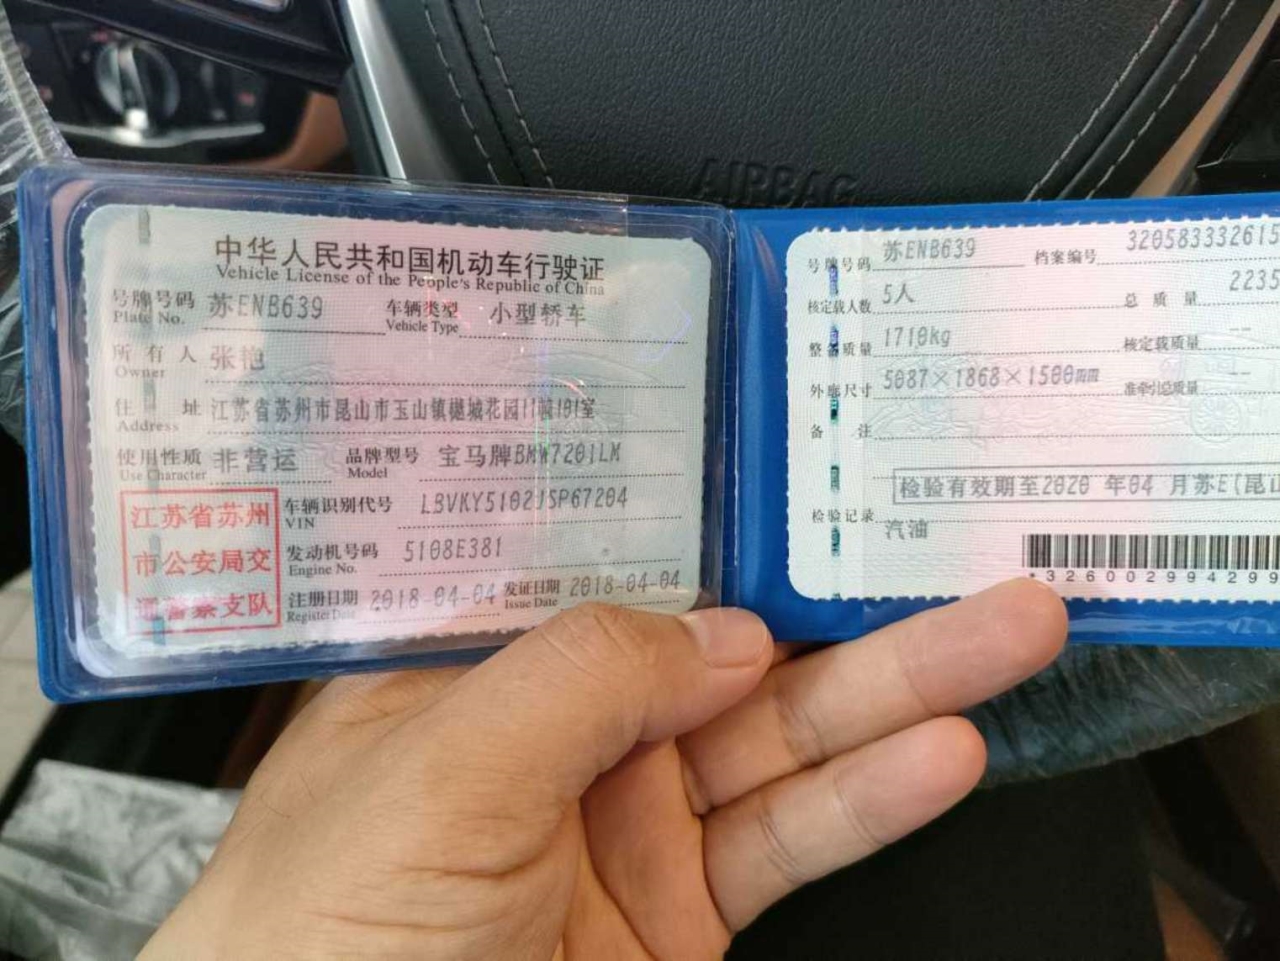 AIRBAG
中华人民共和国机动车行驶证
Vehicle License of the People's Republic of China
号牌号码 苏ENB639 车辆类型 小型轿车
Plate No. Vehicle Type
所有人 张艳
Owner
住址 江苏省苏州市昆山市玉山镇樾城花园11幢101室
Address
使用性质 非营运 品牌型号 宝马牌BMW7201LM
Use Character Model
江苏省苏州
市公安局交
通警察支队
车辆识别代号 LBVKY5102JSP67204
VIN
发动机号码 5108E381
Engine No.
注册日期 2018-04-04 发证日期 2018-04-04
Register Date Issue Date
号牌号码 苏ENB639 档案编号 320583332615
核定载人数 5人 总质量 2235
整备质量 1710kg 核定载质量 --
外廓尺寸 5087×1868×1500mm 准牵引总质量 --
备注
检验有效期至2020年04月苏E(昆山
检验记录
汽油
*326002994299